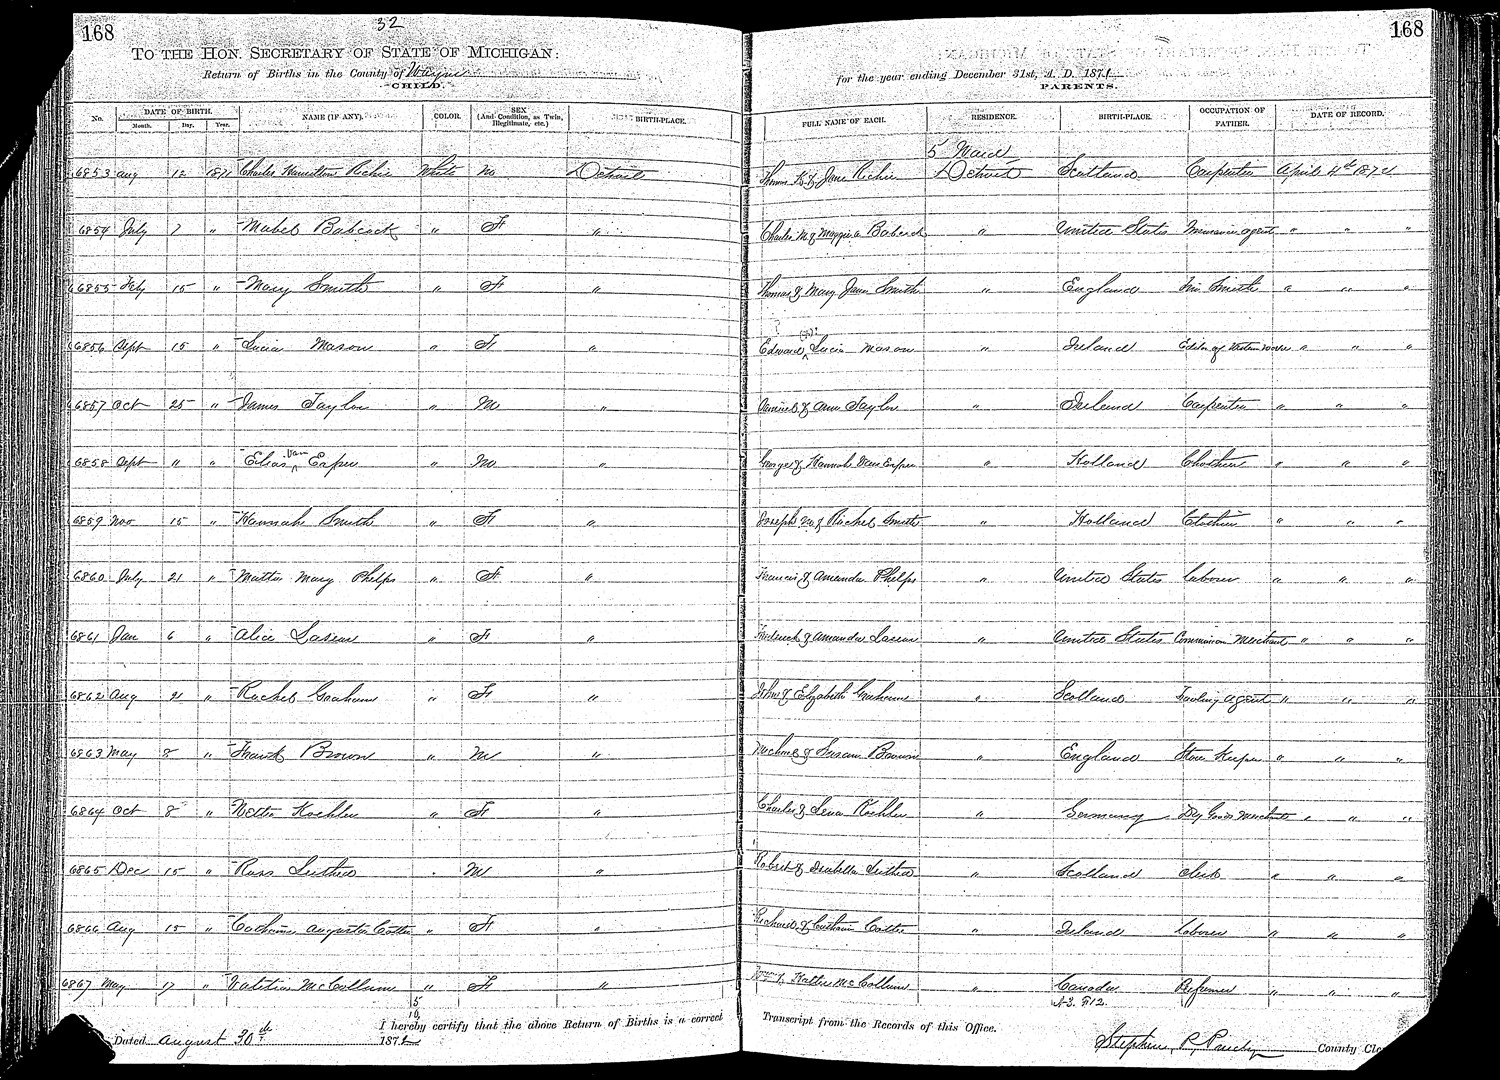 168 32 168
TO THE HON. SECRETARY OF STATE OF MICHIGAN:
Return of Births in the County of Wayne for the year ending December 31st, A. D. 1871
CHILD. PARENTS.
No. DATE OF BIRTH. NAME (IF ANY). COLOR. SEX (And Condition, as Twin, Illegitimate, etc.) BIRTH-PLACE. FULL NAME OF EACH. RESIDENCE. BIRTH-PLACE. OCCUPATION OF FATHER. DATE OF RECORD.
Month. Day. Year.
5 Ward
6853 Aug 12 1871 Charles Richie White M Detroit Thomas K & Jane Richie Detroit Scotland Carpenter April 4th 1872
6854 July 7 " Mabel Babcock " F " Charles M & Maggie Babcock " United States Insurance agent " " "
6855 Feby 15 " Mary Smith " F " Thomas & Mary Jane Smith " England Tin Smith " " "
6856 Sept 15 " Lucia Mason " F " Edward & Lucia Mason " Ireland Editor of " " "
6857 Oct 25 " James Taylor " M " Samuel & Ann Taylor " Ireland Carpenter " " "
6858 Sept " " Elias Van Esper " M " George & Hannah Van Esper " Holland Clothier " " "
6859 Nov 15 " Hannah Smith " F " Joseph M & Rachel Smith " Holland Clothier " " "
6860 July 21 " Mattie Mary Phelps " F " Francis & Amanda Phelps " United States Laborer " " "
6861 Jan 6 " Alice " F " Frederick & Amanda " United States Commission Merchant " " "
6862 Aug 21 " Rachel Graham " F " John & Elizabeth Graham " Scotland Traveling Agent " " "
6863 May 8 " Frank Brown " M " Michael & Susan Brown " England Store Keeper " " "
6864 Oct 8 " Nettie Koehler " F " Charles & Lena Koehler " Germany Dry Goods Merchant " " "
6865 Dec 15 " Ross Leithed " M " Robert & Isabella Leithed " Scotland Clerk " " "
6866 Aug 15 " Catharine Augusta Cotter " F " Richard & Catharine Cotter " Ireland Laborer " " "
6867 May 17 " McCollum " F " & Kattie McCollum " Canada " " "
5
10 13. 712.
I hereby certify that the above Return of Births is a correct Transcript from the Records of this Office.
Dated August 30th 1872 Stephen P. Purdy County Cle